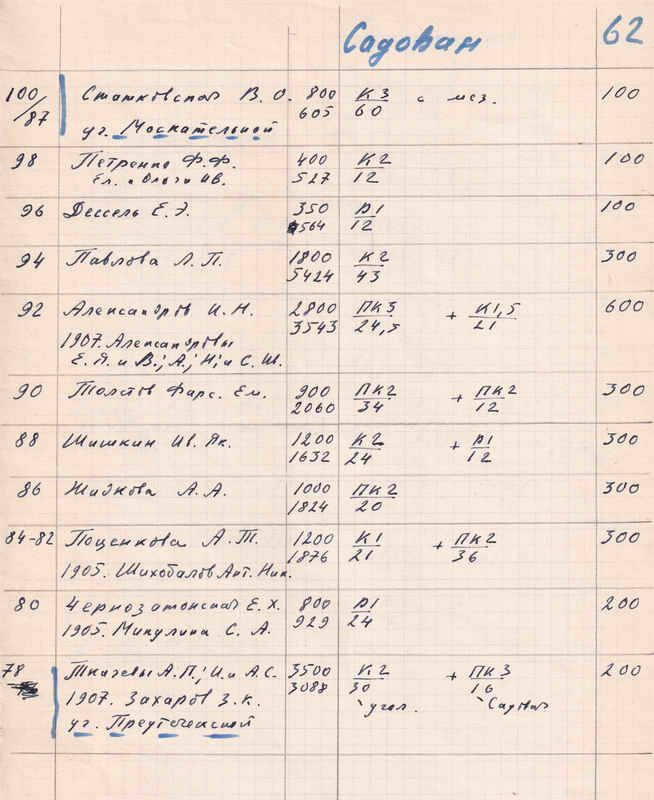 Садовая 62
100/87 Статковская В. О. 800 К3 с мез. 100
605 60
уг. Москательной
98 Петренко Ф. Ф. 400 К2 100
Ел. и Ольги Ив. 527 12
96 Дессель Е. Э. 350 Д1 100
564 12
94 Павлова Л. П. 1800 К2 300
5424 43
92 Александров И. Н. 2800 ПК3 + К1,5 600
3543 24,5 21
1907. Александровы
Е. Я. и В.; А.; Н; и С. Ш.
90 Толстов Фарс. Ем. 900 ПК2 + ПК2 300
2060 34 12
88 Шишкин Ив. Як. 1200 К2 + Д1 300
1632 24 12
86 Жидкова А. А. 1000 ПК2 300
1824 20
84-82 Поценкова А. Т. 1200 К1 + ПК2 300
1876 21 36
1905. Шихобалов Ант. Ник.
80 Чернозатонская Е. Х. 800 Д1 200
1905. Микулина С. А. 929 24
78 Ткачевы А. П.; И. и А. С. 3500 К2 + ПК3 200
3088 30 16
1907. Захаров З. К. угол. Садовая
уг. Предтеченской